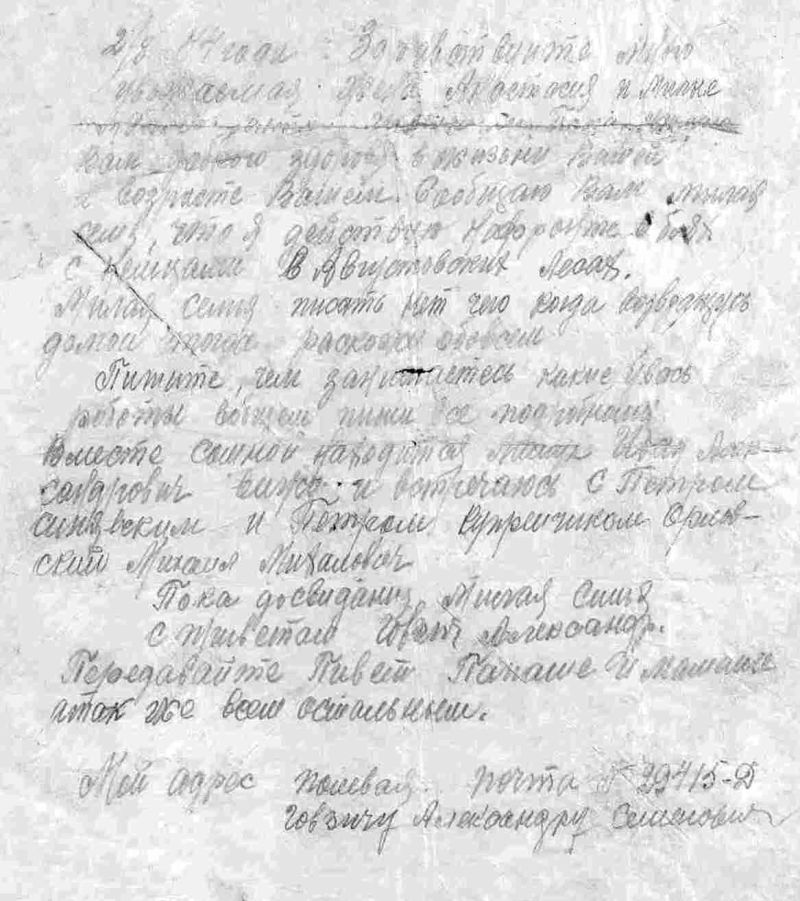 44 года Здравствуйте мною
уважаемая Анастасия и милые
Вам доброго здоровья в жизни Вашей
и возросте Вашем. Сообщаю Вам милая
семья, что я действую на фронте в боях
с немцами В Августовских лесах.
Милая семья писать нет чего когда возвращусь
домой тогда раскажу обовсем
Пишите, чем занимаетесь какие увась
работы вобщем пиши все подробнее
Вместе сомной находится Иван Алек-
сандрович вижус и встречаюсь с Петром
синявским и Петром Купрейчиком Орлов-
ский Михаил Михалович
Пока досвидания Милая Семья
с приветом Говзич Александр.
Передавайте Пивет Папаше и мамаше
атак же всем остальным.
Мой адрес полевая почта № 39415-Д
Говзичу Александру Семеновичу